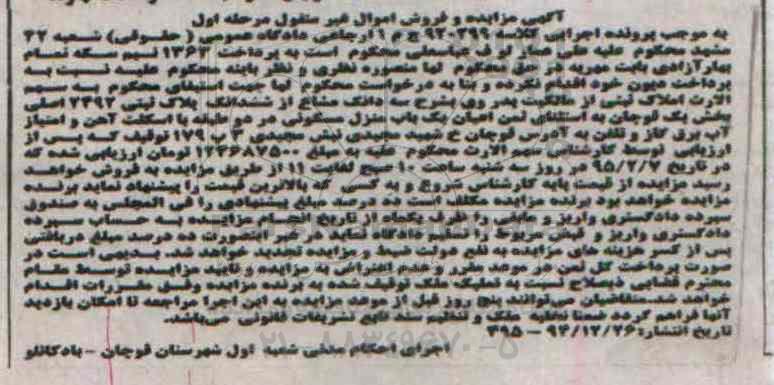 آگهی مزایده و فروش اموال غیر منقول مرحله اول
به موجب پرونده اجرایی کلاسه ۹۲۰۲۹۹ ج م ۱ ارجاعی دادگاه عمومی ( حقوقی) شعبه ۲۲
مشهد محکوم علیه علی صفار لوف عباسعلی محکوم است به پرداخت ۱۳۶۲ نیم سکه تمام
بهار آزادی بابت مهریه در حق محکوم لها منصوره نظری و نظر باینکه محکوم علیه نسبت به
پرداخت دیون خود اقدام نکرده و بنا به درخواست محکوم لها جهت استیفای محکوم به سهم
الارث املاک ثبتی از مالکیت پدر وی بشرح سه دانگ مشاع از ششدانگ پلاک ثبتی ۲۳۹۲ اصلی
بخش یک قوچان به استثنای ثمن اعیان یک باب منزل مسکونی در دو طبقه با اسکلت آهن و امتیاز
آب برق گاز و تلفن به آدرس قوچان خ شهید مجیدی نبش مجیدی ۳ پ ۱۷۹ توقیف که پس از
ارزیابی توسط کارشناس سهم الارث محکوم علیه به مبلغ ۱۲۳۶۸۷۵۰۰ تومان ارزیابی شده که
در تاریخ ۹۵/۲/۷ در روز سه شنبه ساعت ۱۰ صبح لغایت ۱۱ از طریق مزایده به فروش خواهد
رسید مزایده از قیمت پایه کارشناس شروع و به کسی که بالاترین قیمت را پیشنهاد نماید برنده
مزایده خواهد بود برنده مزایده مکلف است ده درصد مبلغ پیشنهادی را فی المجلس به صندوق
سپرده دادگستری واریز و مابقی را ظرف یکماه از تاریخ انجام مزایده به حساب سپرده
دادگستری واریز و قبض مربوطه را تسلیم دادگاه نماید در غیر اینصورت ده درصد مبلغ دریافتی
پس از کسر هزینه های مزایده به نفع دولت ضبط و مزایده تجدید خواهد شد. بدیهی است در
صورت پرداخت کل ثمن در موعد مقرر و عدم اعتراض به مزایده و تایید مزایده توسط مقام
محترم قضایی ذیصلاح نسبت به تملیک ملک توقیف شده به برنده مزایده وفق مقررات اقدام
خواهد شد.متقاضیان می‌توانند پنج روز قبل از موعد مزایده به این اجرا مراجعه تا امکان بازدید
آنها فراهم گردد ضمنا تخلیه ملک و تنظیم سند تابع تشریفات قانونی می‌باشد.
تاریخ انتشار: ۹۴/۱۲/۲۶ – ۳۹۵
اجرای احکام مدنی شعبه اول شهرستان قوچان -بادکانلو